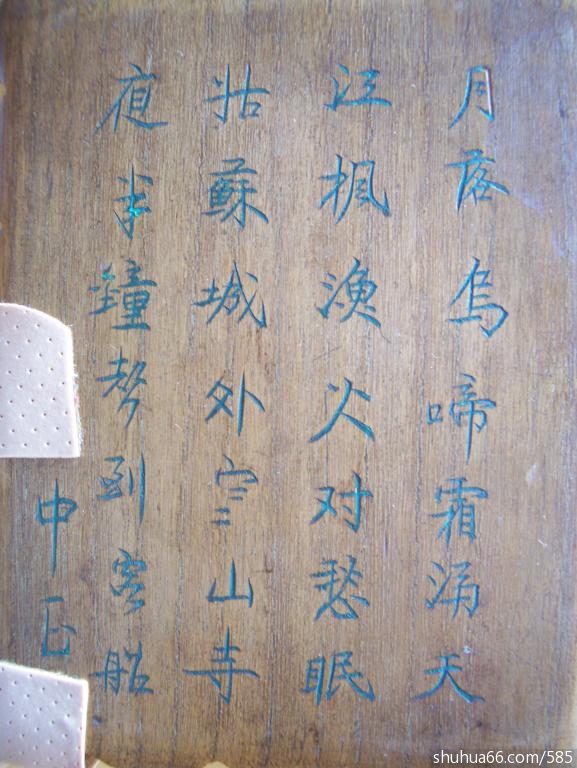 月落烏啼霜满天
江枫渔火对愁眠
姑蘇城外寒山寺
夜半鐘聲到客船
中正
shuhua66.com/585